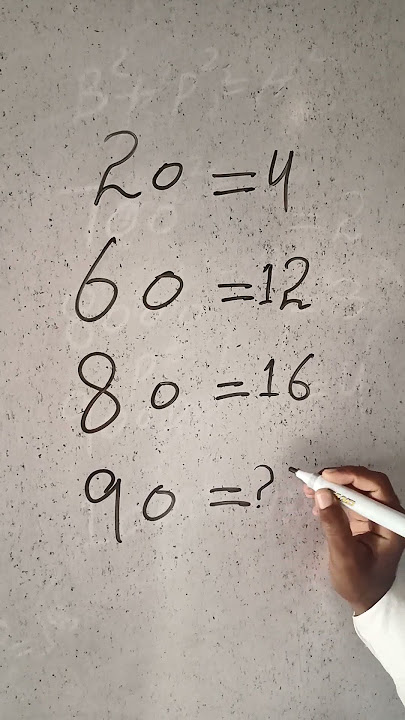 20 = 4
60 = 12
80 = 16
90 = ?